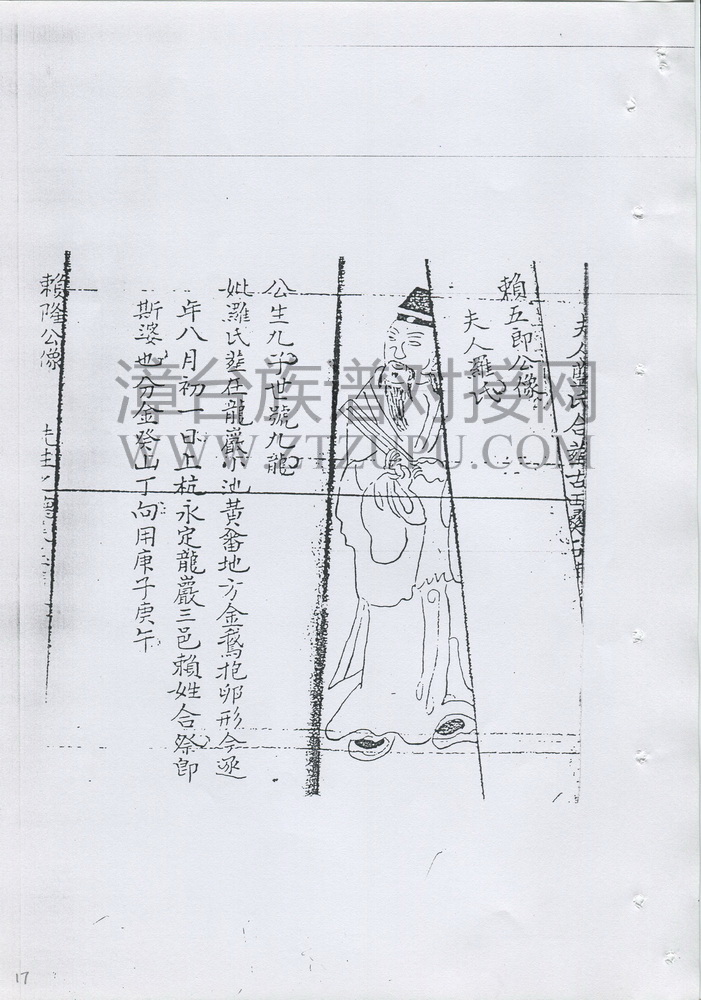 夫人藍氏合葬古
賴五郎公像
夫人羅氏
公生九子世號九龍
妣羅氏葬在龍巖小池黃畬地方金鵞抱卵形今逐
年八月初一日上杭永定龍巖三邑賴姓合祭即
斯婆也分金癸山丁向用庚子庚午
賴隆公像
漳台族谱对接网
WWW.ZTZUPU.COM
17